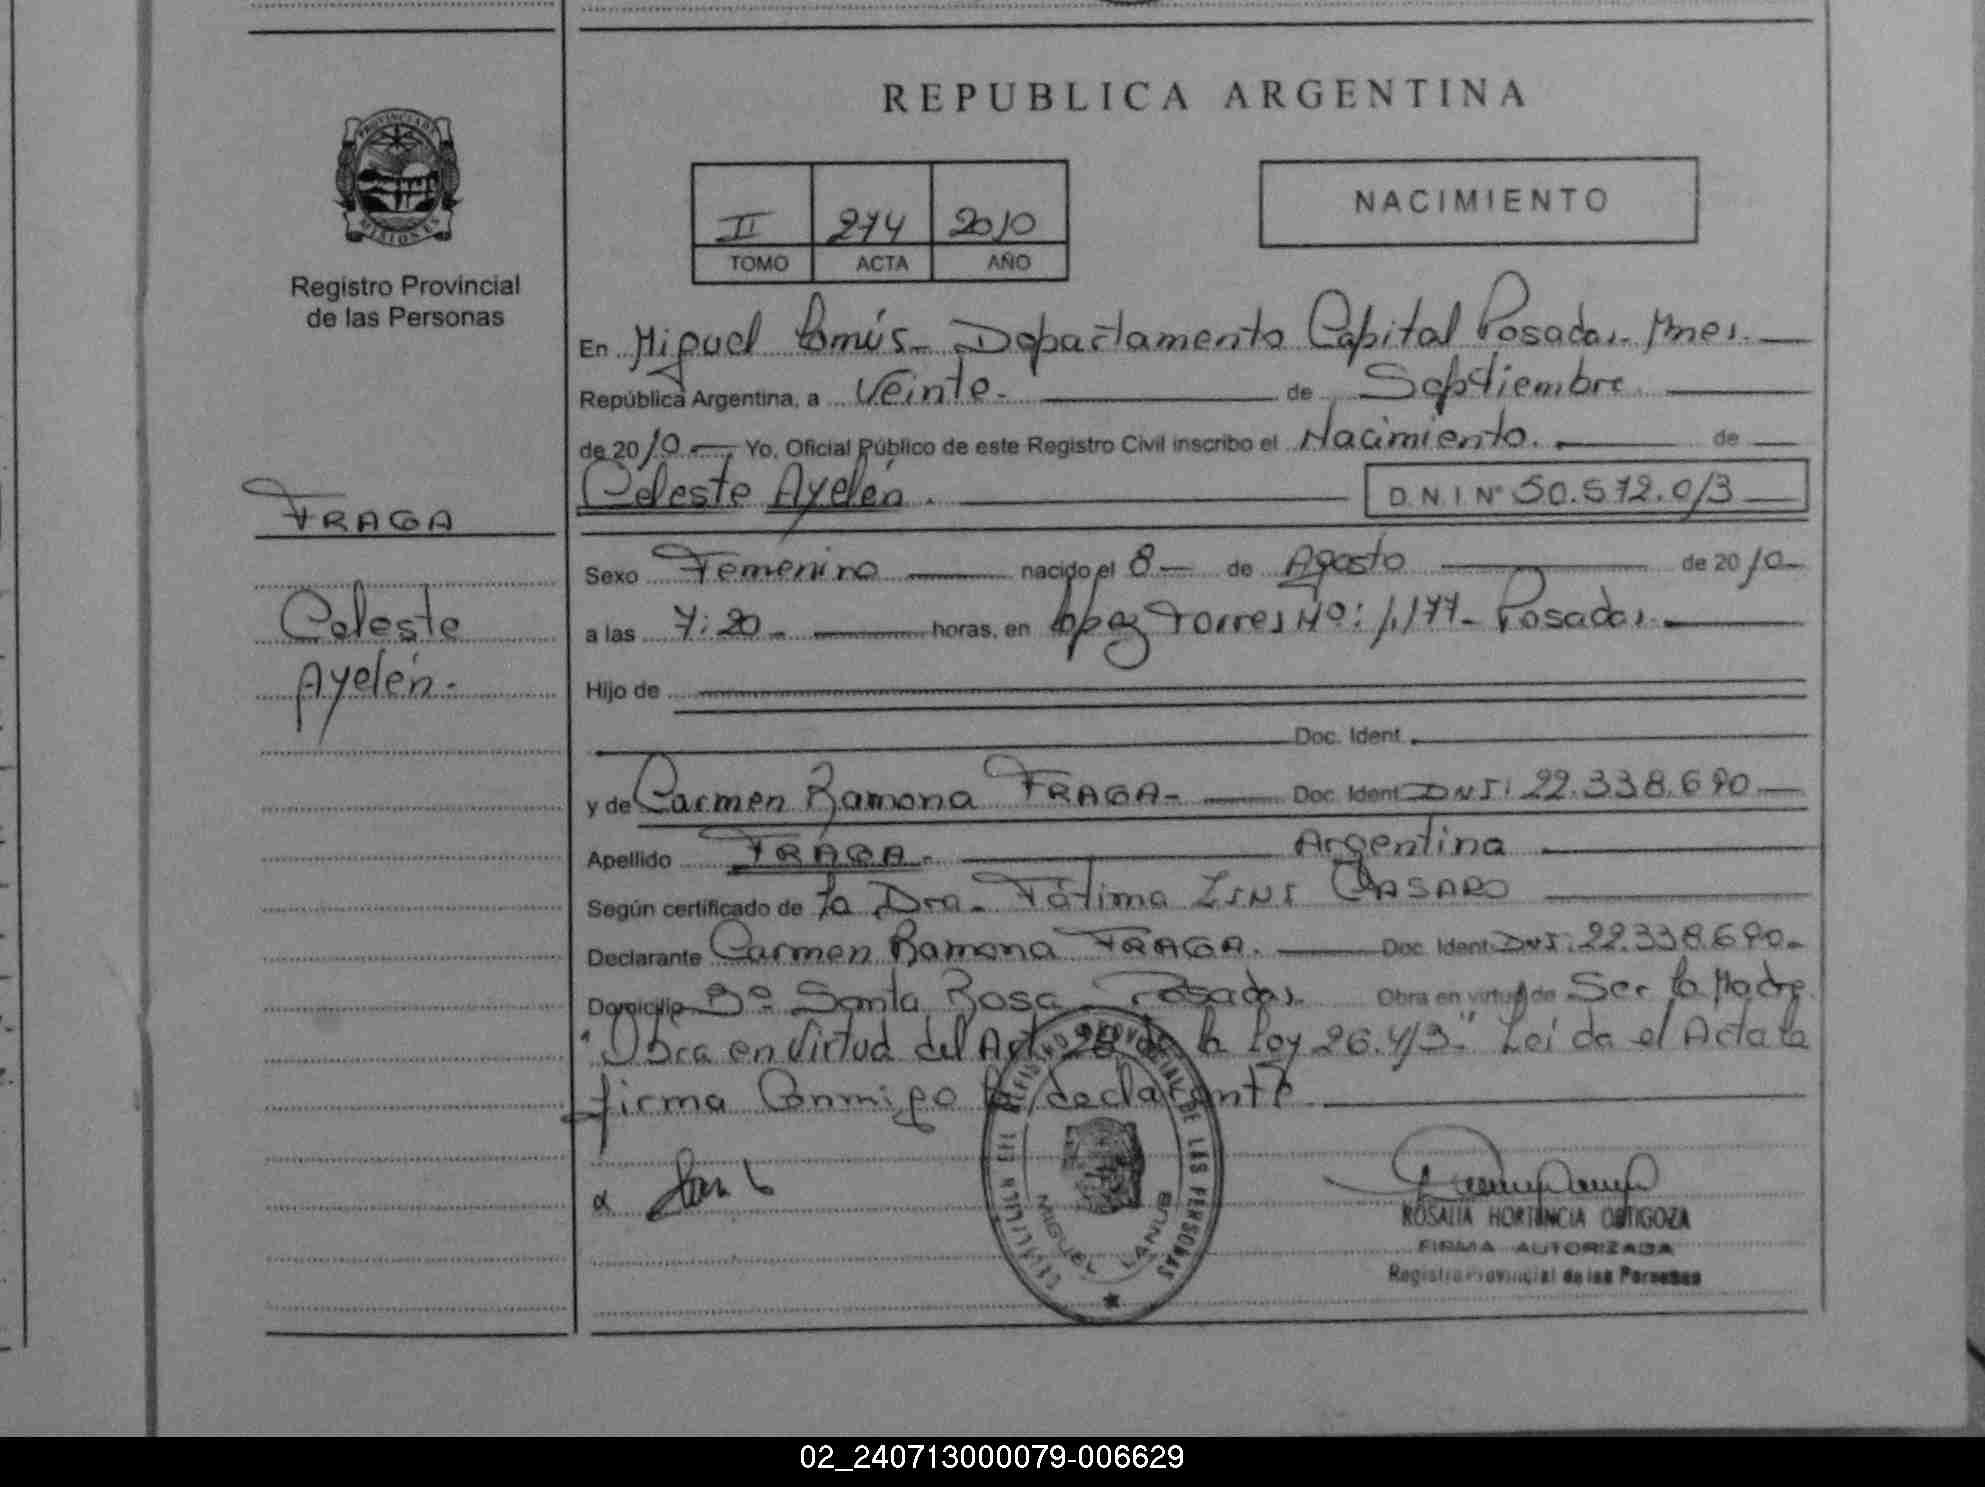 REPUBLICA ARGENTINA
PROVINCIA DE MISIONES
Registro Provincial
de las Personas
II 274 2010
TOMO ACTA AÑO
NACIMIENTO
En Miguel Lanús - Departamento Capital Posadas - Mnes.
República Argentina, a Veinte - de Septiembre
de 2010 Yo, Oficial Público de este Registro Civil inscribo el Nacimiento. de
Celeste Ayelén. D.N.I. Nº 50.572.013
FRAGA
Celeste
Ayelén.-
Sexo Femenino nacido el 8 de Agosto de 2010
a las 7:20 - horas, en López Torres Nº: 1.177 - Posadas.
Hijo de
Doc. Ident.
y de Carmen Ramona FRAGA - Doc. Ident. DNI: 22.338.690
Apellido FRAGA - Argentina
Según certificado de la Dra. Fátima
Declarante Carmen Ramona FRAGA. Doc. Ident. DNI: 22.338.690 -
Domicilio Bº Santa Rosa - Posadas. Obra en virtud de Ser la Madre
"Obra en Virtud del Art. 28 de la Ley 26.413." Leída el Acta la
firma Conmigo la declarante
REGISTRO PROVINCIAL DE LAS PERSONAS
MIGUEL LANUS
ROSALIA HORTENCIA ORTIGOZA
FIRMA AUTORIZADA
Registro Provincial de las Personas
02_240713000079-006629